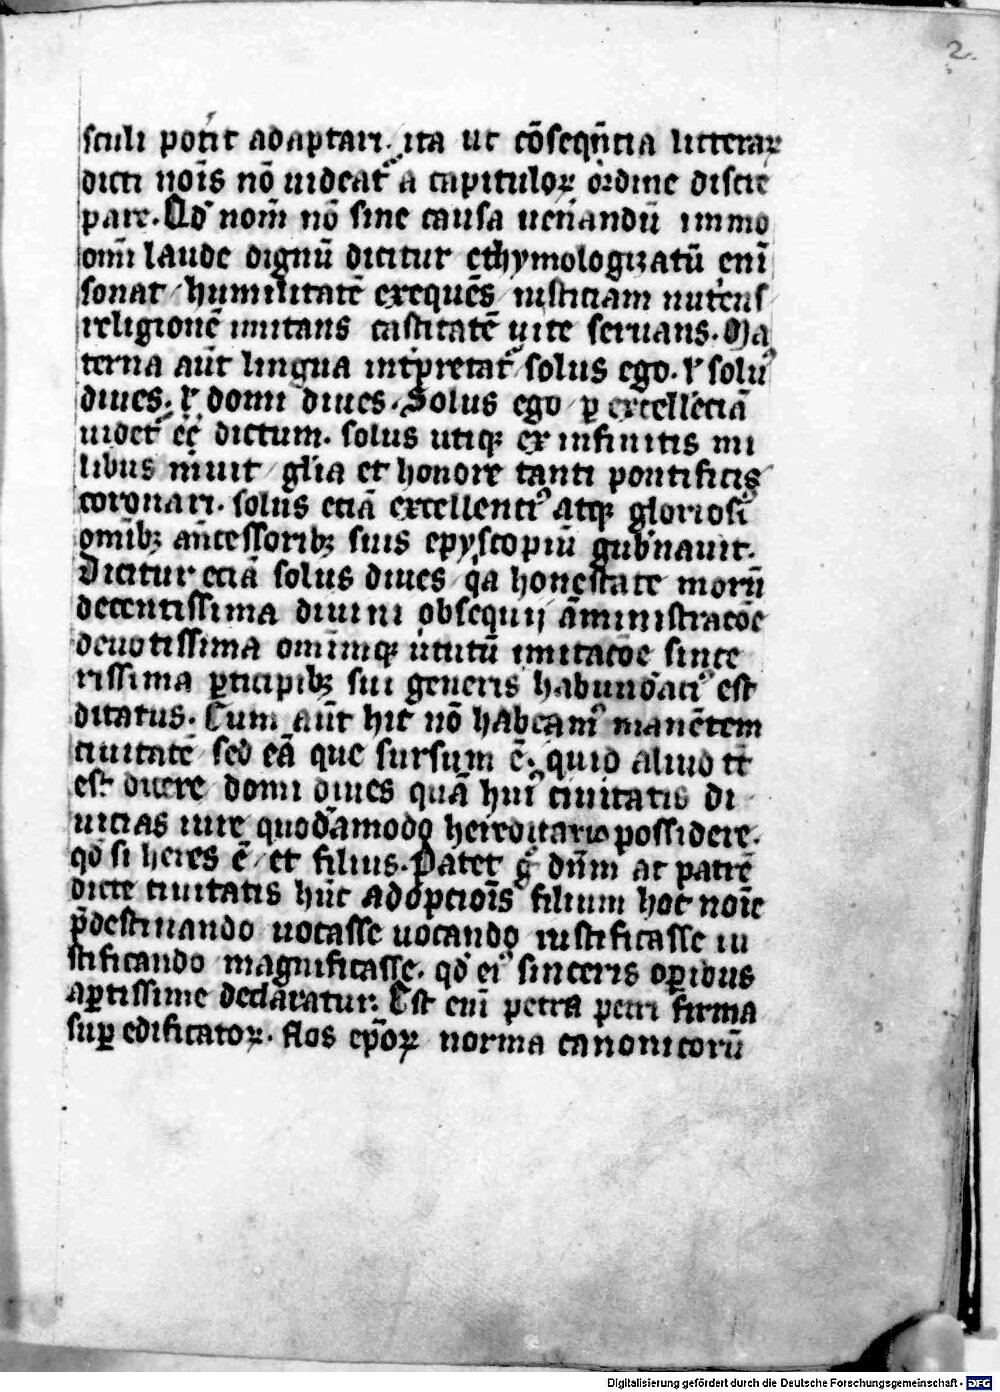 2.
sculi pot᷑it adaptari. ita ut cōseqn̄cia litterarꝝ
dicti noīs nō uideatᷣ a capituloꝝ ordine discre
pare. Qd̕ nom̄ nō sine causa uen̄andū immo
om̄i laude dignū dicitur ethymologizatū eni̅
sonat humilitatē exequēs iusticiam nutriens
religionē imitans castitatē uite seruans. Ma
terna aūt lingua intp̄retatᷣ solus ego. ł solus
diues. ł domi diues. Solus ego ꝑ excellēciā
uidetᷣ eē dictum. solus utiqꝫ ex infinitis mi
libus meruit gl̄ia et honore tanti pontificis
coronari. solus eciā excellentiꝰ atqꝫ gloriosiꝰ
om̄ibꝫ an̄cessoribꝫ suis epyscopiū gub̄nauit.
Dicitur eciā solus diues qͣ honestate morū
decentissima diuini obsequij āministracōe
deuotissima om̄iumqꝫ uirtutū imitacōe since
rissima ꝑticipibꝫ sui generis habundāciꝰ est
ditatus. Cum aūt hic nō habeamꝰ manētem
ciuitatē sed eā que sursum ē. quid aliud tn̄
est dicere domi diues quā huiꝰ ciuitatis di
uicias iure quodāmodo hereditario possidere.
qd̕ si heres ē et filius. Patet gͦ dn̄m ac patrē
dicte ciuitatis hūc adopcioīs filium hoc noīe
p̄destinando uocasse uocando iustificasse iu
stificando magnificasse. qd̕ eiꝰ sinceris oꝑibus
aꝑtissime declaratur. Est eni̅ petra petri firma
suꝑ edificatoꝝ. flos ep̄oꝝ norma canonicorū
Digitalisierung gefördert durch die Deutsche Forschungsgemeinschaft - DFG